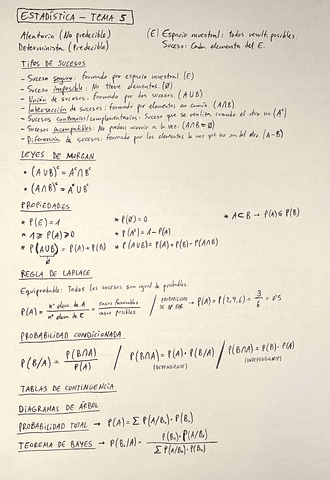 ESTADÍSTICA - TEMA 5
Aleatorio (No predecible)
Determinista (Predecible)
(E) Espacio muestral: todos result. posibles.
Suceso: Cada elemento del E.
TIPOS DE SUCESOS
- Suceso seguro: formado por espacio muestral (E)
- Suceso imposible: No tiene elementos. (Ø)
- Unión de sucesos: formado por dos sucesos (A∪B)
- Intersección de sucesos: formado por elementos en común. (A∩B)
- Sucesos contrarios/complementarios: Suceso que se verifica cuando el otro no. (Aᶜ)
- Sucesos incompatibles: No pueden ocurrir a la vez. (A∩B=Ø)
- Diferencia de sucesos: formado por los elementos de uno que no son del otro. (A-B)
LEYES DE MORGAN
• (A∪B)ᶜ = Aᶜ∩Bᶜ
• (A∩B)ᶜ = Aᶜ∪Bᶜ
PROPIEDADES
* P(E)=1 * P(Ø)=0 * A⊂B → P(A)≤P(B)
* 1≥P(A)≥0 * P(Aᶜ)=1-P(A)
* P(A∪B) = P(A)+P(B) * P(A∪B) = P(A)+P(B)-P(A∩B)
Ø
REGLA DE LAPLACE
Equiprobable: Todos los sucesos son igual de probables.
P(A) = nº elem. de A / nº elem. de E = casos favorables / casos posibles / PROBABILIDAD DE Nº PAR → P(A) = P(2,4,6) = 3/6 = 0'5
PROBABILIDAD CONDICIONADA
P(B/A) = P(B∩A) / P(A) / P(B∩A) = P(A)·P(B/A) / P(B∩A) = P(B)·P(A)
(DEPENDIENTE) (INDEPENDIENTE)
TABLAS DE CONTINGENCIA
DIAGRAMAS DE ÁRBOL
PROBABILIDAD TOTAL → P(A) = Σ P(A/Bₙ)·P(Bₙ)
TEOREMA DE BAYES → P(Bₙ/A) = P(Bₙ)·P(A/Bₙ) / Σ P(A/Bₙ)·P(Bₙ)